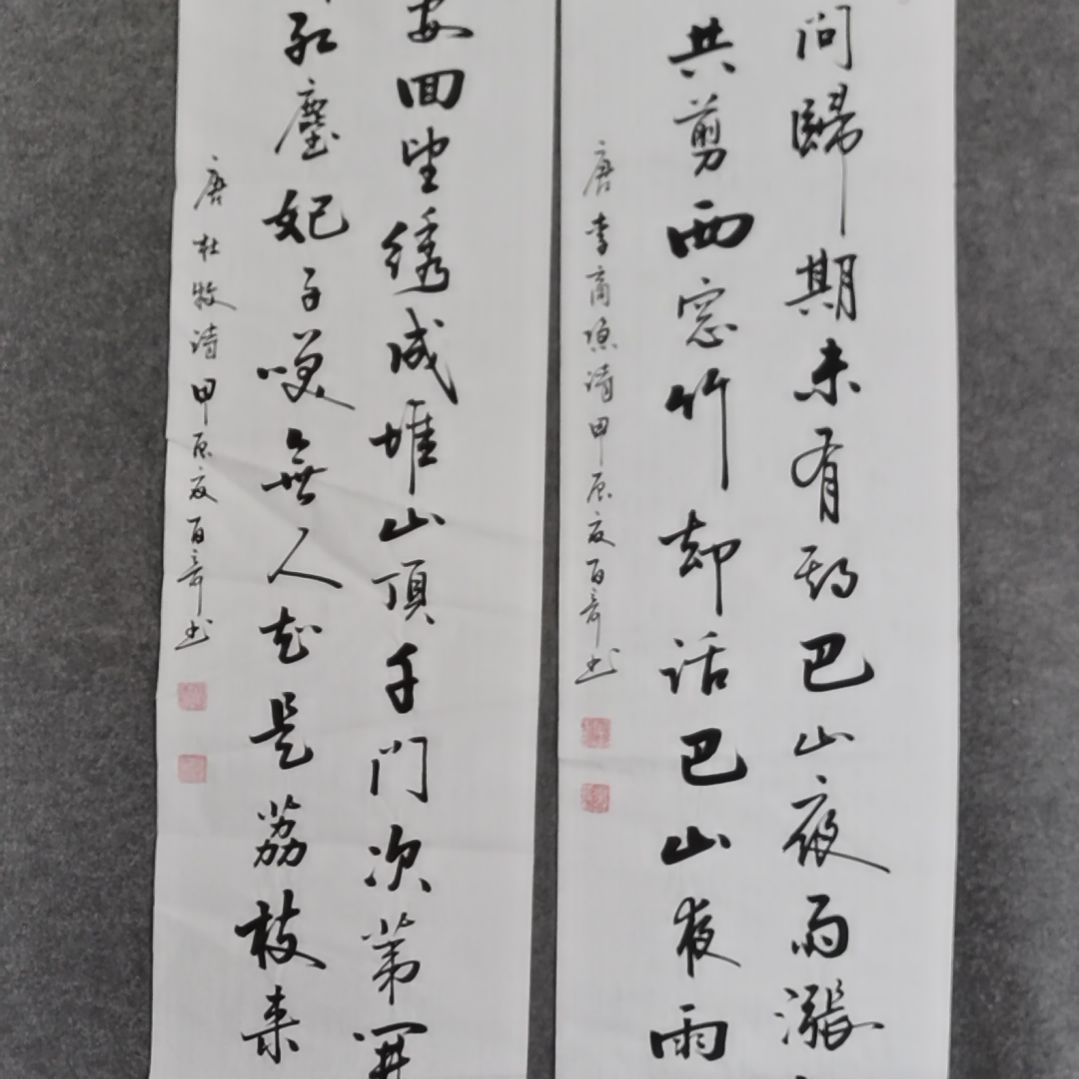 問歸期未有期巴山夜雨漲
共剪西窓竹却话巴山夜雨
唐李商隐诗甲辰夏百奇书
安回望绣成堆山頂千门次第開
红塵妃子笑無人知是荔枝来
唐杜牧诗甲辰夏百奇书